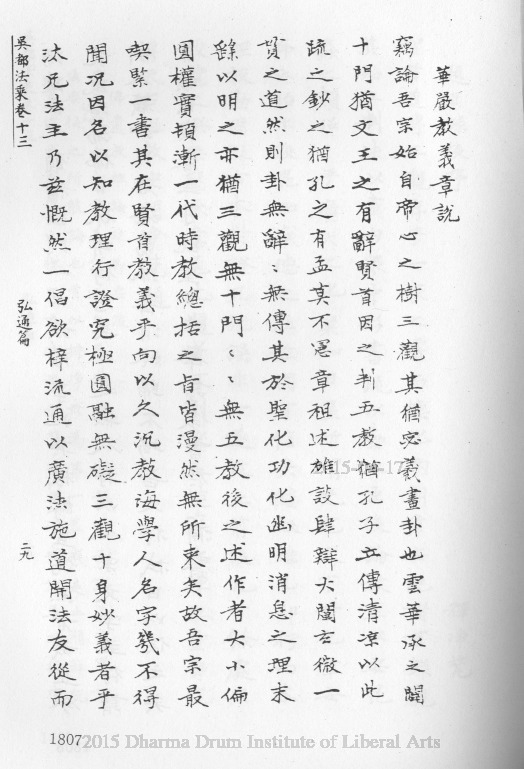 華嚴教義章說
竊論吾宗始自帝心之樹三觀其猶宓羲畫卦也雲華承之闢
十門猶文王之有辭賢首因之判五教猶孔子立傳清涼以此
疏之鈔之猶孔之有孟莫不憲章祖述雄設肆辯大闡玄微一
貫之道然則卦無辭：無傳其於聖化功化幽明消息之理末
繇以明之亦猶三觀無十門：：無五教後之述作者大小偏
圓權實頓漸一代時教總括之旨皆漫然無所束矣故吾宗最
喫緊一書其在賢首教義乎向以久沉教海學人名字幾不得
聞況因名以知教理行證究極圓融無礙三觀十身妙義者乎
汰兄法主乃茲慨然一倡欲梓流通以廣法施道開法友從而
吳都法乘卷十三
弘通篇
二九
1807
2015 Dharma Drum Institute of Liberal Arts